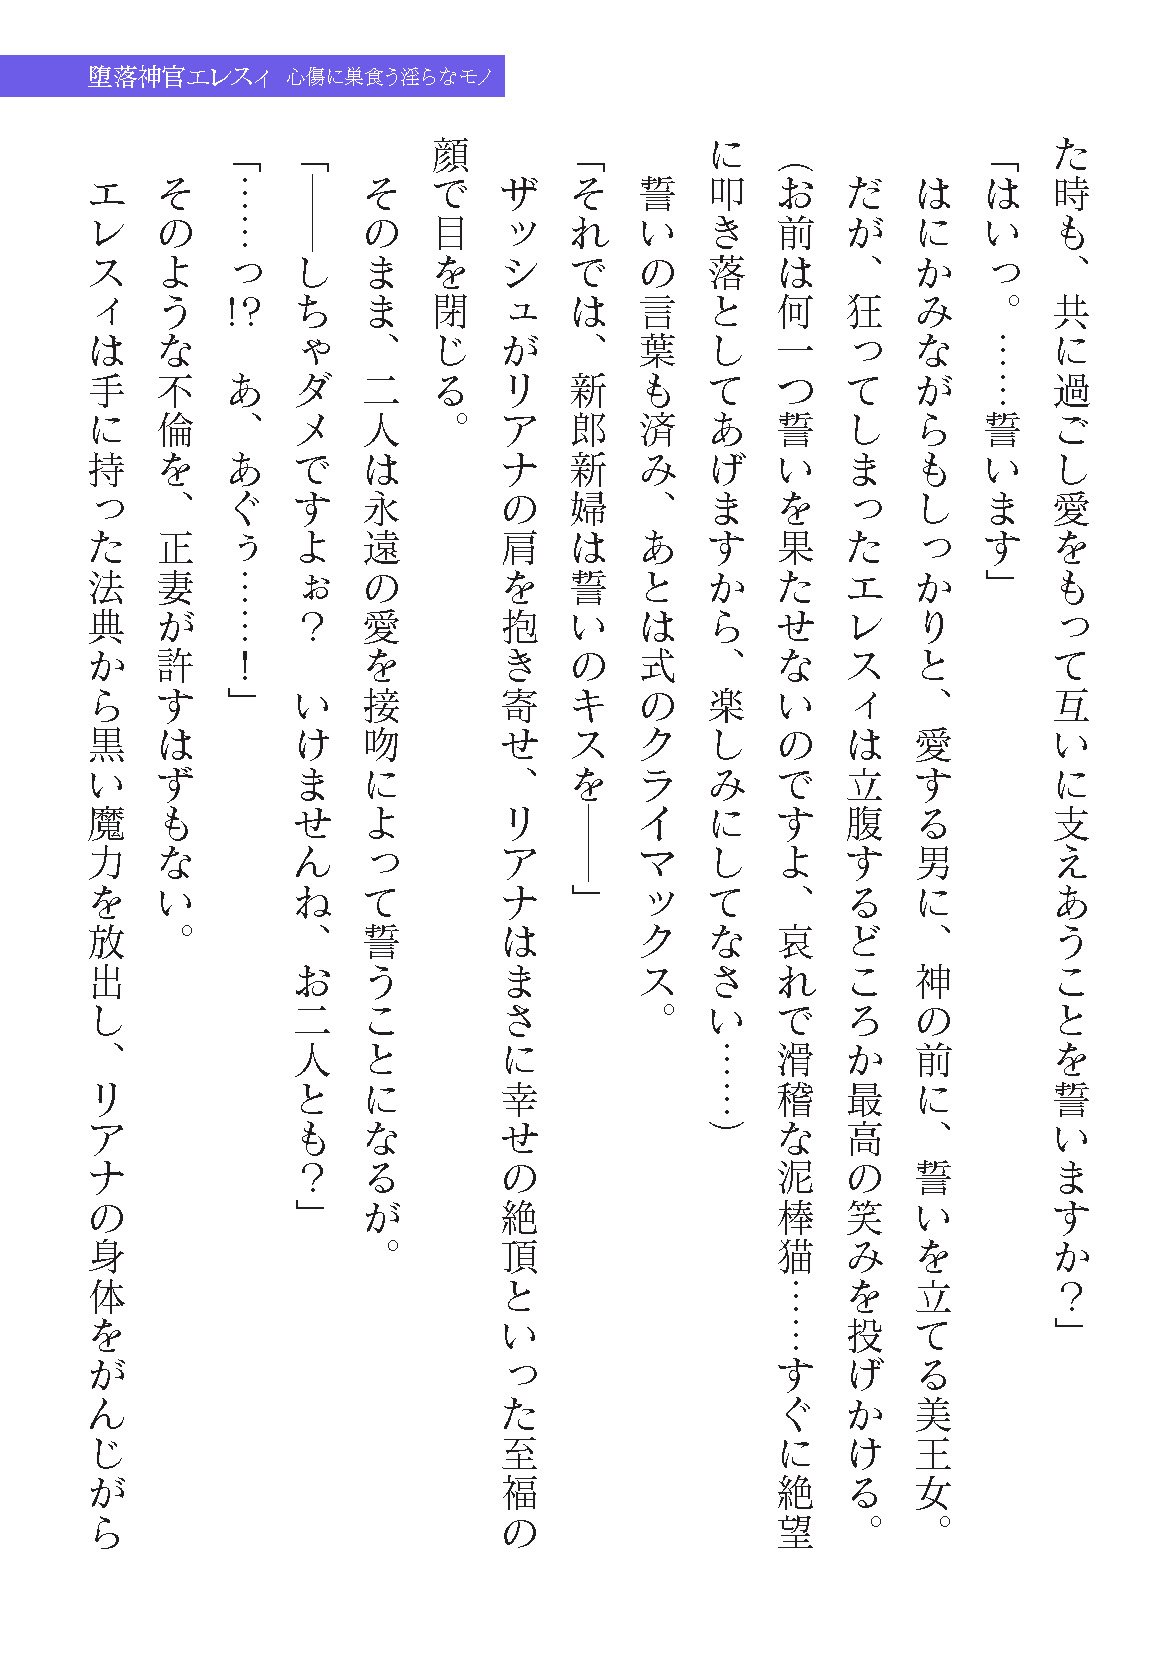 堕落神官エレスィ 心傷に巣食う淫らなモノ
た時も、共に過ごし愛をもって互いに支えあうことを誓いますか？」
「はいっ。……誓います」
はにかみながらもしっかりと、愛する男に、神の前に、誓いを立てる美王女。
だが、狂ってしまったエレスィは立腹するどころか最高の笑みを投げかける。
（お前は何一つ誓いを果たせないのですよ、哀れで滑稽な泥棒猫……すぐに絶望
に叩き落としてあげますから、楽しみにしてなさい……）
誓いの言葉も済み、あとは式のクライマックス。
「それでは、新郎新婦は誓いのキスを――」
ザッシュがリアナの肩を抱き寄せ、リアナはまさに幸せの絶頂といった至福の
顔で目を閉じる。
そのまま、二人は永遠の愛を接吻によって誓うことになるが。
「――しちゃダメですよぉ？　いけませんね、お二人とも？」
「……っ!?　あ、あぐぅ……！」
そのような不倫を、正妻が許すはずもない。
エレスィは手に持った法典から黒い魔力を放出し、リアナの身体をがんじがら